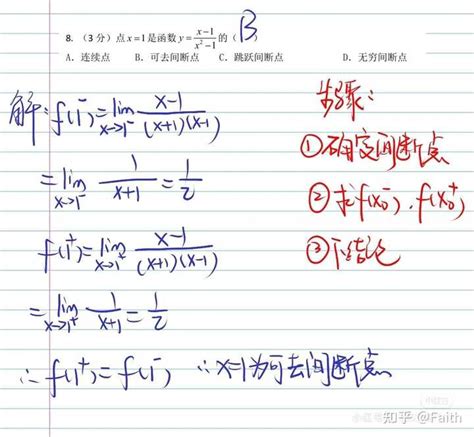 8. （3 分）点 x=1 是函数 y=\frac{x-1}{x^2-1} 的（ B ）
A. 连续点 B. 可去间断点 C. 跳跃间断点 D. 无穷间断点
解: f(1^-)=\lim_{x→1^-}\frac{x-1}{(x+1)(x-1)}
=\lim_{x→1^-}\frac{1}{x+1}=\frac{1}{2}
f(1^+)=\lim_{x→1^+}\frac{x-1}{(x+1)(x-1)}
=\lim_{x→1^+}\frac{1}{x+1}=\frac{1}{2}
∴f(1^+)=f(1^-) ∴x=1为可去间断点
步骤:
①确定间断点
②求f(x_0^-),f(x_0^+)
③下结论
知乎 @Faith